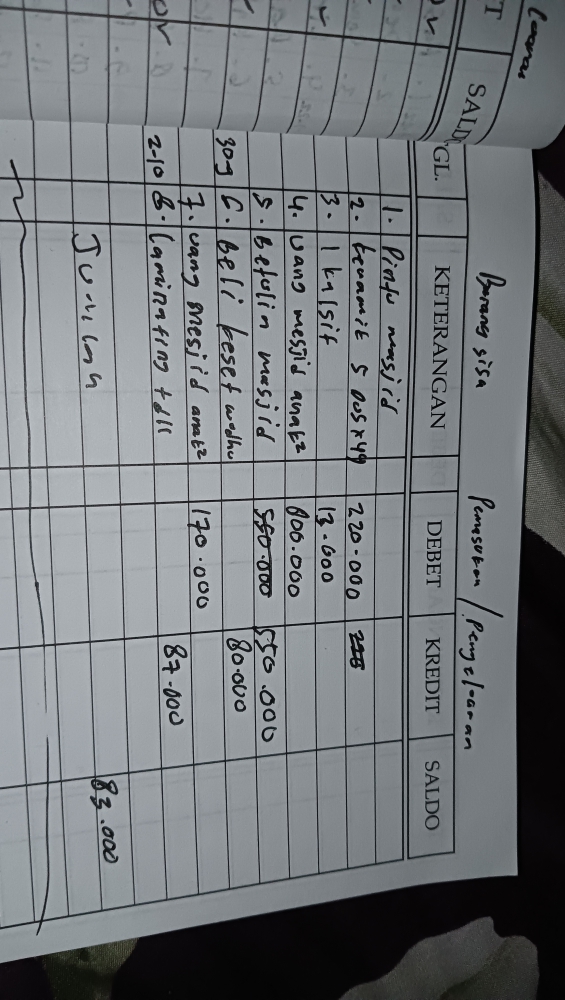 Barang sisa Pemasukan / Pengeluaran
TGL. KETERANGAN DEBET KREDIT SALDO
1. Pintu masjid
2. keramik 5 dus x 44 220.000
3. 1 kalsit 13.000
4. uang mesjid anak² 800.000
5. Betulin masjid 550.000 550.000
30 9 6. Beli keset wudhu 80.000
7. uang mesjid anak² 170.000
2-10 8. Laminating + dll 87.000
Jumlah 83.000
T SALDO